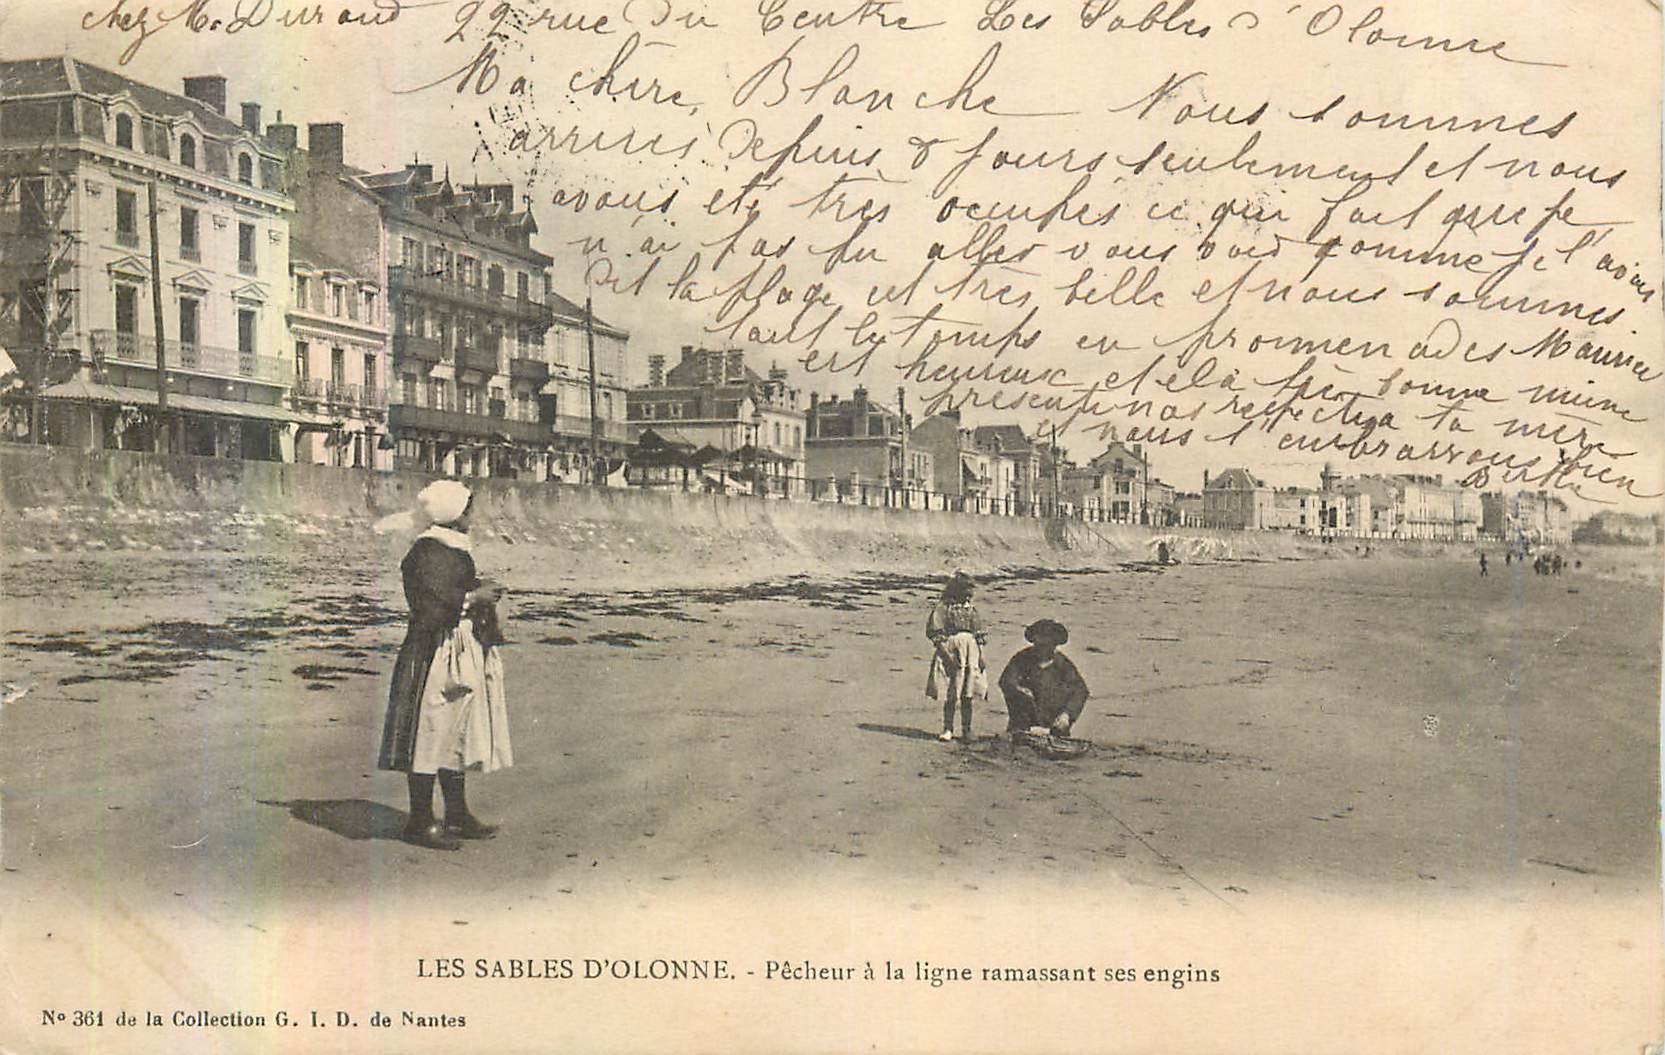 chez M. Durand 22 rue du Centre Les Sables d'Olonne
Ma chère Blanche Nous sommes
arrivés depuis 8 jours seulement et nous
avons été très occupés ce qui fait que je
n'ai pas pu aller vous voir comme je l'avais
dit la plage est très belle et nous sommes
tout le temps en promenades Maurice
est heureux et a très bonne mine
présente nos respects à ta mère
et nous t'embrassons bien
Berthe
LES SABLES D'OLONNE. - Pêcheur à la ligne ramassant ses engins
Nº 361 de la Collection G. I. D. de Nantes